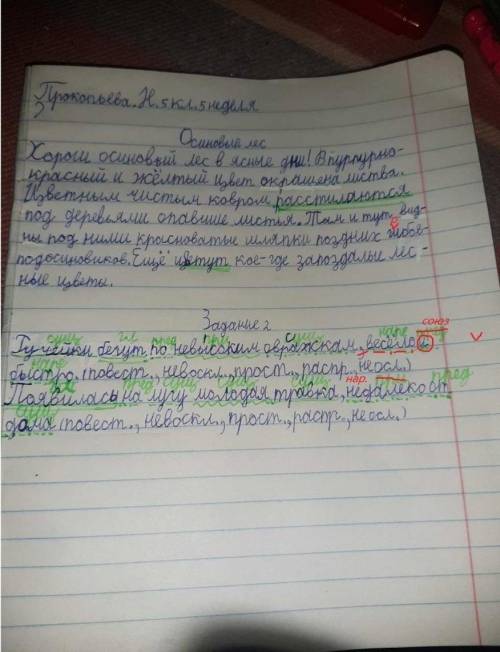 Прокопьева. Н. 5 кл. 5 неделя
3
Осиновый лес
Хорош осиновый лес в ясные дни! В пурпурно-
красный и жёлтый цвет окрашена листва.
Цветным чистым ковром расстилаются
под деревьями опавшие листья. Там и тут вид-
ны под ними красноватые шляпки поздних грибов
подосиновиков. Ещё цветут кое-где запоздалые лес-
ные цветы.
Задание 2
сущ гл пред прил сущ наре союз
Ручейки бегут по невысоким овражкам, весело и
быстро. (повест., невоскл., прост., распр., неосл.)
наре гл пред сущ прил сущ нар. пред
Появилась на лугу молодая травка, недалеко от
сущ
дома (повест., невоскл., прост., распр., неосл.)